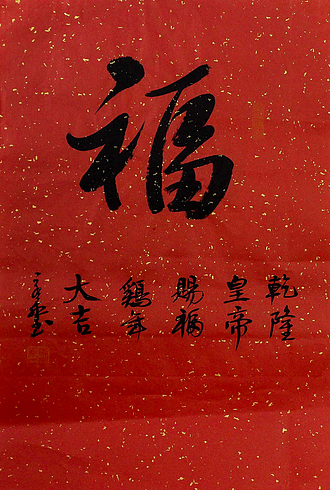 福
乾隆
皇帝
赐福
鷄年
大吉